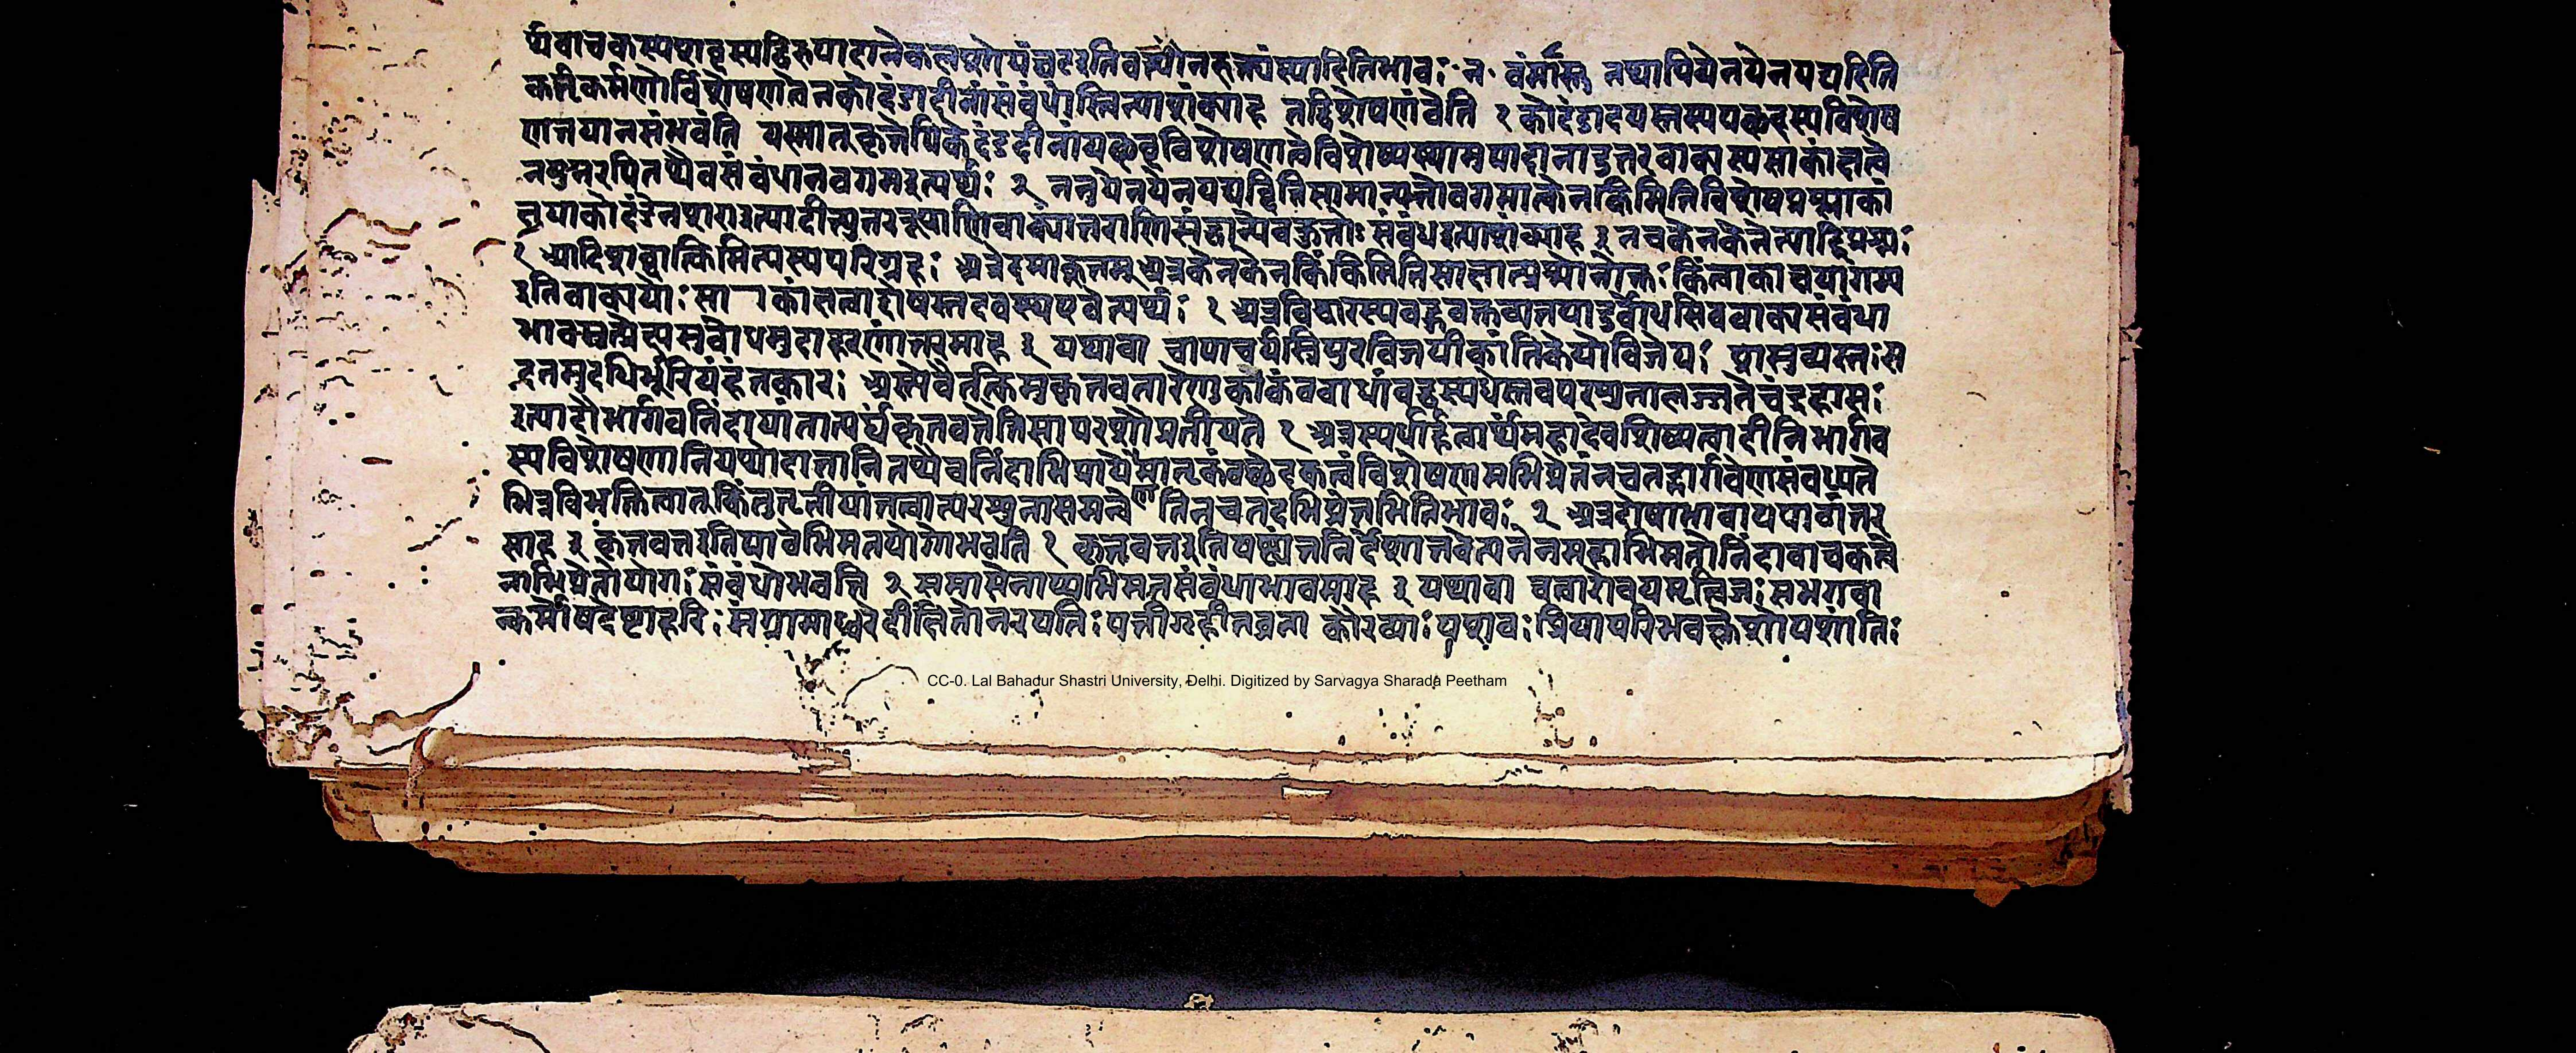 र्थवाचकस्यशब्दस्यद्विरुपादानेकलशोयंघटइतिवत्पौनरुक्त्यंस्यादितिभावः न वंर्मास्तु तथापियेनयेनयद्यदिति
कर्तृकर्मणोर्विशेषणत्वेनकोदंडादीनांसंबंधोस्त्वित्याशंक्याह तद्विशेषणंवेति १ कोदंडादयस्तस्ययच्छब्दस्यविशेष
णतयानसंभवंति यस्मात्तुकृतेपिकोदंडादीनांयच्छब्दविशेषणत्वेविशेष्यस्यानुपादानादुत्तरवाक्यस्यसाकांक्षत्वे
नपुनरपितथैवसंबंधानवगमइत्यर्थः २ ननुयेनयेनयद्यदितिसामान्यतोवगमात्केनकिमितिविशेषप्रश्नाकां
क्षयाकोदंडेनशराइत्यादीन्युत्तररूपाणिवाक्यांतराणिसंत्वित्येवकुतोःसंबंधइत्याशंक्याह ३ नचकेनकेनेत्यादिप्रश्नः
१ आदिशब्दात्किमित्यस्यपरिग्रहः अत्रेदमाकूतम् अत्रकेनकेनकिंकिमितिसाक्षात्प्रश्नोनोक्तः किंत्वाकांक्षयागम्य
इतिवाक्ययोः साकांक्षत्वाद्दोषस्तदवस्थएवेत्यर्थः १ अत्रविचारस्यबहुवक्तव्यतयादुर्बोधमिववाक्यसंबंधा
भावस्तथेत्यसुबोधमुदाहरणांतरमाह ३ यथावा चापाचार्यस्त्रिपुरविजयीकार्तिकेयोविजेयः शस्त्रव्यस्तःस
दनमुदधिर्भूरियंहंतकारः अस्त्येवैतत्किमुकृतवतारेणुकाकंठबाधांबद्धस्पर्धस्तवपरशुनालज्जतेचंद्रहासः
इत्यादौभार्गवनिंदायांतात्पर्यंकृतवतेतिसापरशौप्रतीयते १ अत्रस्पर्धार्हत्वार्थंमहादेवशिष्यत्वादीनिभार्गव
स्यविशेषणानियथोपात्तानितथैवनिंदाभिप्रायेणमातृकंठच्छेदकत्वंविशेषणमभिप्रेतंनचतद्भार्गवेणसंबध्यते
भिन्नविभक्तित्वात्किंतुतृतीयांतत्वात्परशुनासमन्वेतिनचतदभिप्रेतमितिभावः २ अत्रदोषाभावायपाठांतर
माह ३ कृतवतइतिपाठेभिमतयोगोभवति १ कृतवतइतिषष्ठ्यंतनिर्देशात्तवेत्यनेनसहाभिमतोनिंदावाचकत्वे
नाभिप्रेतोयोगः संबंधोभवति २ समासेनाप्यभिमतसंबंधाभावमाह ३ यथावा चत्वारोवयमृत्विजः सभगवा
न्कर्मोपदेष्टाहरिः संग्रामाध्वरदीक्षितोनरपतिः पत्नीगृहीतव्रता कौरव्याः पशवः प्रियापरिभवक्लेशोपशांतिः
CC-0. Lal Bahadur Shastri University, Delhi. Digitized by Sarvagya Sharada Peetham